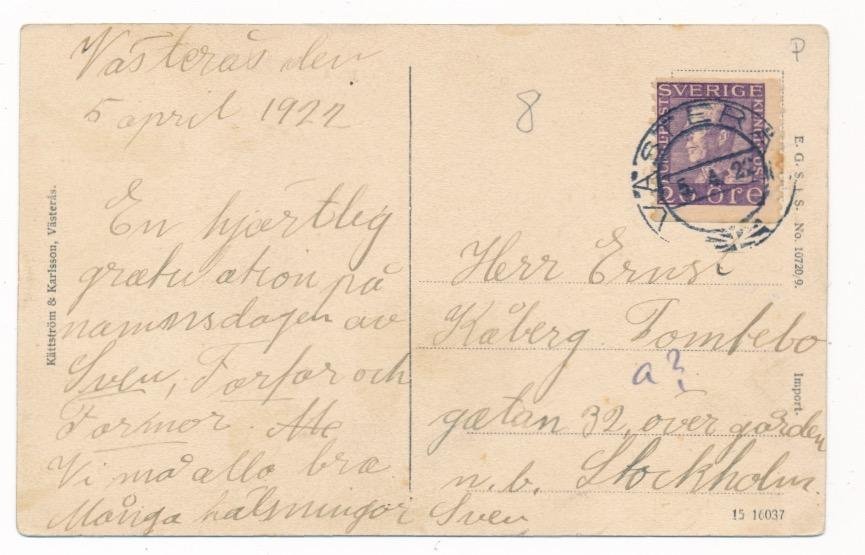 Västerås den
5 april 1922
En hjærtlig
gratu ation på
namnsdagen av
Sven, Farfar och
Farmor.
Vi må alla bra
Många hälsningar Sven
Kättström & Karlsson, Västerås.
8
P
SVERIGE
20 öre
VÄSTERÅS
5. 4. 22
Herr Ernst
Kåberg. Tomtebo
a?
gatan 32, över gården
n.b. Stockholm.
E. G. S. i. S. No. 10720/9.
Import.
15 16037